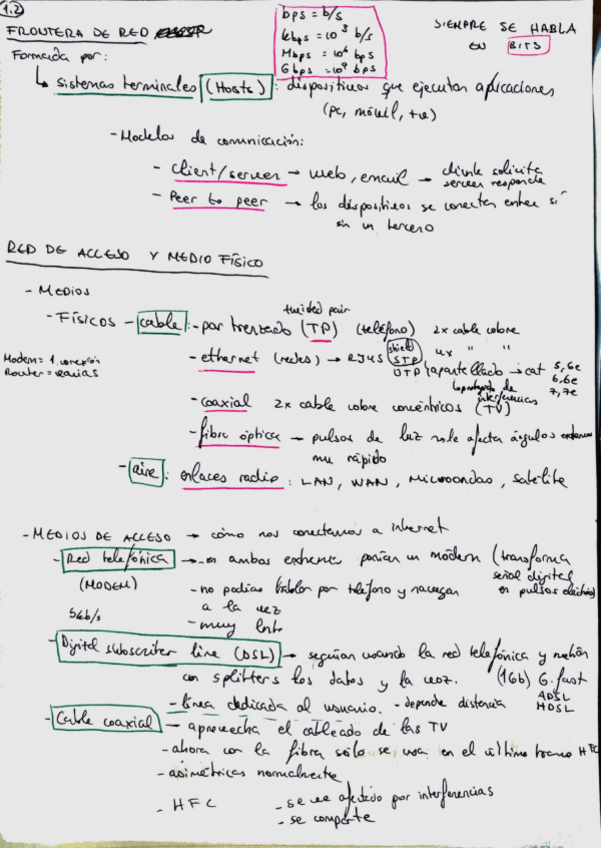 1.2
FRONTERA DE RED
bps = b/s
kbps = 10³ b/s
Mbps = 10⁶ bps
Gbps = 10⁹ bps
SIEMPRE SE HABLA
EN BITS
Formada por:
↳ sistemas terminales (Hosts): dispositivos que ejecutan aplicaciones
(pc, móvil, +ve)
- Modelos de comunicación:
- client/server → web, email → cliente solicita
server responde
- Peer to peer → los dispositivos se conectan entre sí
sin un tercero
RED DE ACCESO Y MEDIO FÍSICO
- MEDIOS
- FÍSICOS - cable: - par trenzado (TP) (teléfono) 2x cable cobre
twisted pair
Modem = 1 conexión
Router = varias
- ethernet (redes) → RJ45 STP 4x " "
shield
UTP apantallado → cat 5, 6e
6, 6e
7, 7e
protegido de
interferencias
- coaxial 2x cable cobre concéntricos (TV)
- fibra óptica - pulsos de luz no le afecta ángulos
muy rápido
- aire: enlaces radio: LAN, WAN, Microondas, satélite
- MEDIOS DE ACCESO → cómo nos conectamos a internet
- Red telefónica → en ambos extremos ponían un módem (transforma
señal digital
en pulsos eléctricos)
(MODEM)
56b/s
- no podías hablar por teléfono y navegar
a la vez
- muy lento
- Digital subscriber line (DSL) → seguían usando la red telefónica y
con splitters los datos y la voz. (1Gb) G.fast
ADSL
HDSL
- línea dedicada al usuario. - depende distancia
- Cable coaxial - aprovecha el cableado de las TV
- ahora con la fibra sólo se usa en el último tramo HFC
- asimétricas normalmente
- HFC
- se ve afectado por interferencias
- se comparte